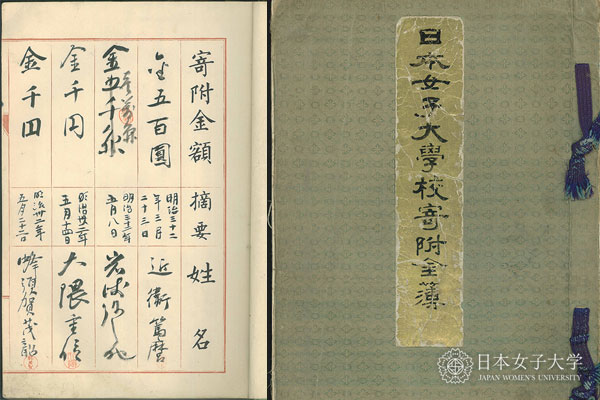 寄附金額 摘要 姓名
金五百圓
明治三十二
年三月
二十三日
近衛篤麿
明治三十二年
五月八日
金千円
明治卅二年
五月十四日
大隈重信
金千円
明治卅二年
五月二十二日
蜂須賀茂韶
日本女子大學校寄附金簿
日本女子大学
JAPAN WOMEN'S UNIVERSITY